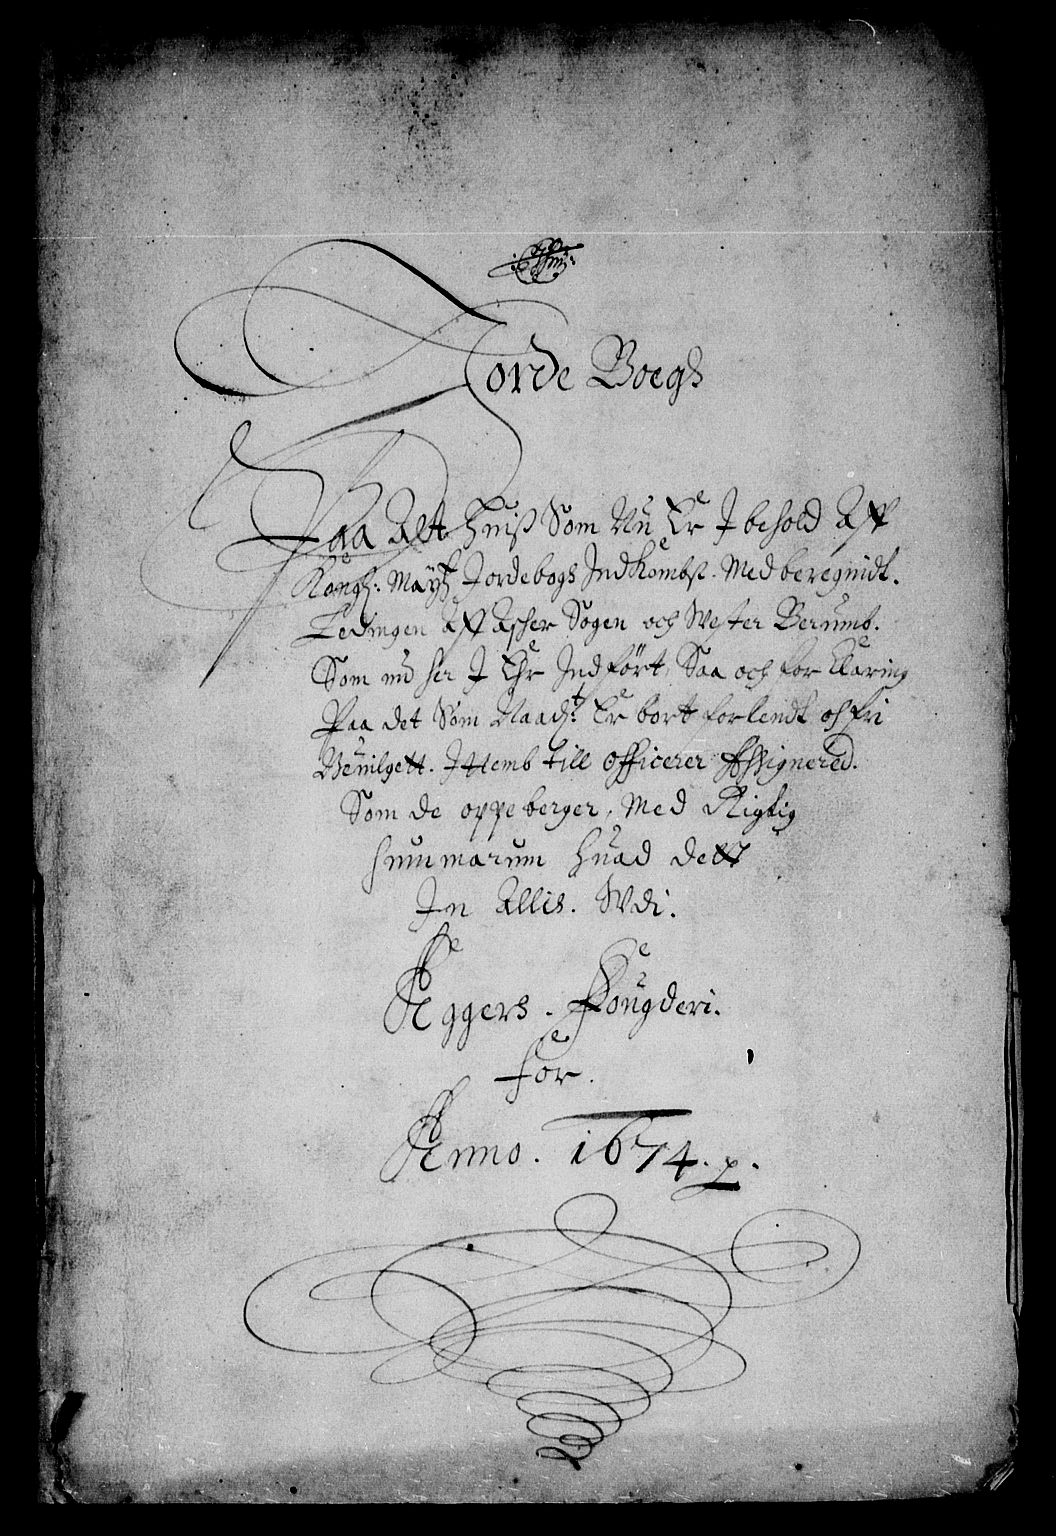 Jorde Boegh
Paa Alt Huiss Som Nu Er J behold Aff
Kongl: Maÿtz Jordebogs Jndkombst. Med beregnidt.
Tedingen Aff Asker Sogen och Wester Berumb.
Som nu her J Ehr Jndfört, Saa och for Klaring
Paa det Som Naadt: Er bort forlendt och fri
Beuilgett. Jttemb till officerer Assignered.
Som de oppeberger, Med Rigtig
Summarum huad dett
Jn Allis. Wdi.
Aggers. Fougderi.
for.
Anno. 1674. p.